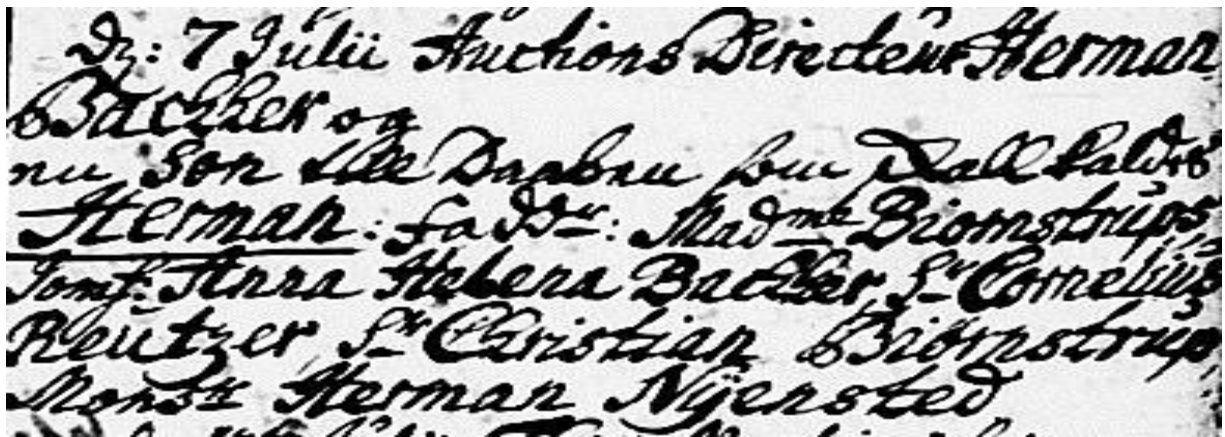 Dz: 7 Julii Auctions Directeur Herman
Bachher og
nu Søn till Daaben som skall kaldes
Herman: Fadd.r: Mad.me Biørnstrups,
Jomf.r Anna Helena Bachher, S.r Cornelius
Reutzer, S.r Christian Biørnstrup
Mons.r Herman Nÿensted